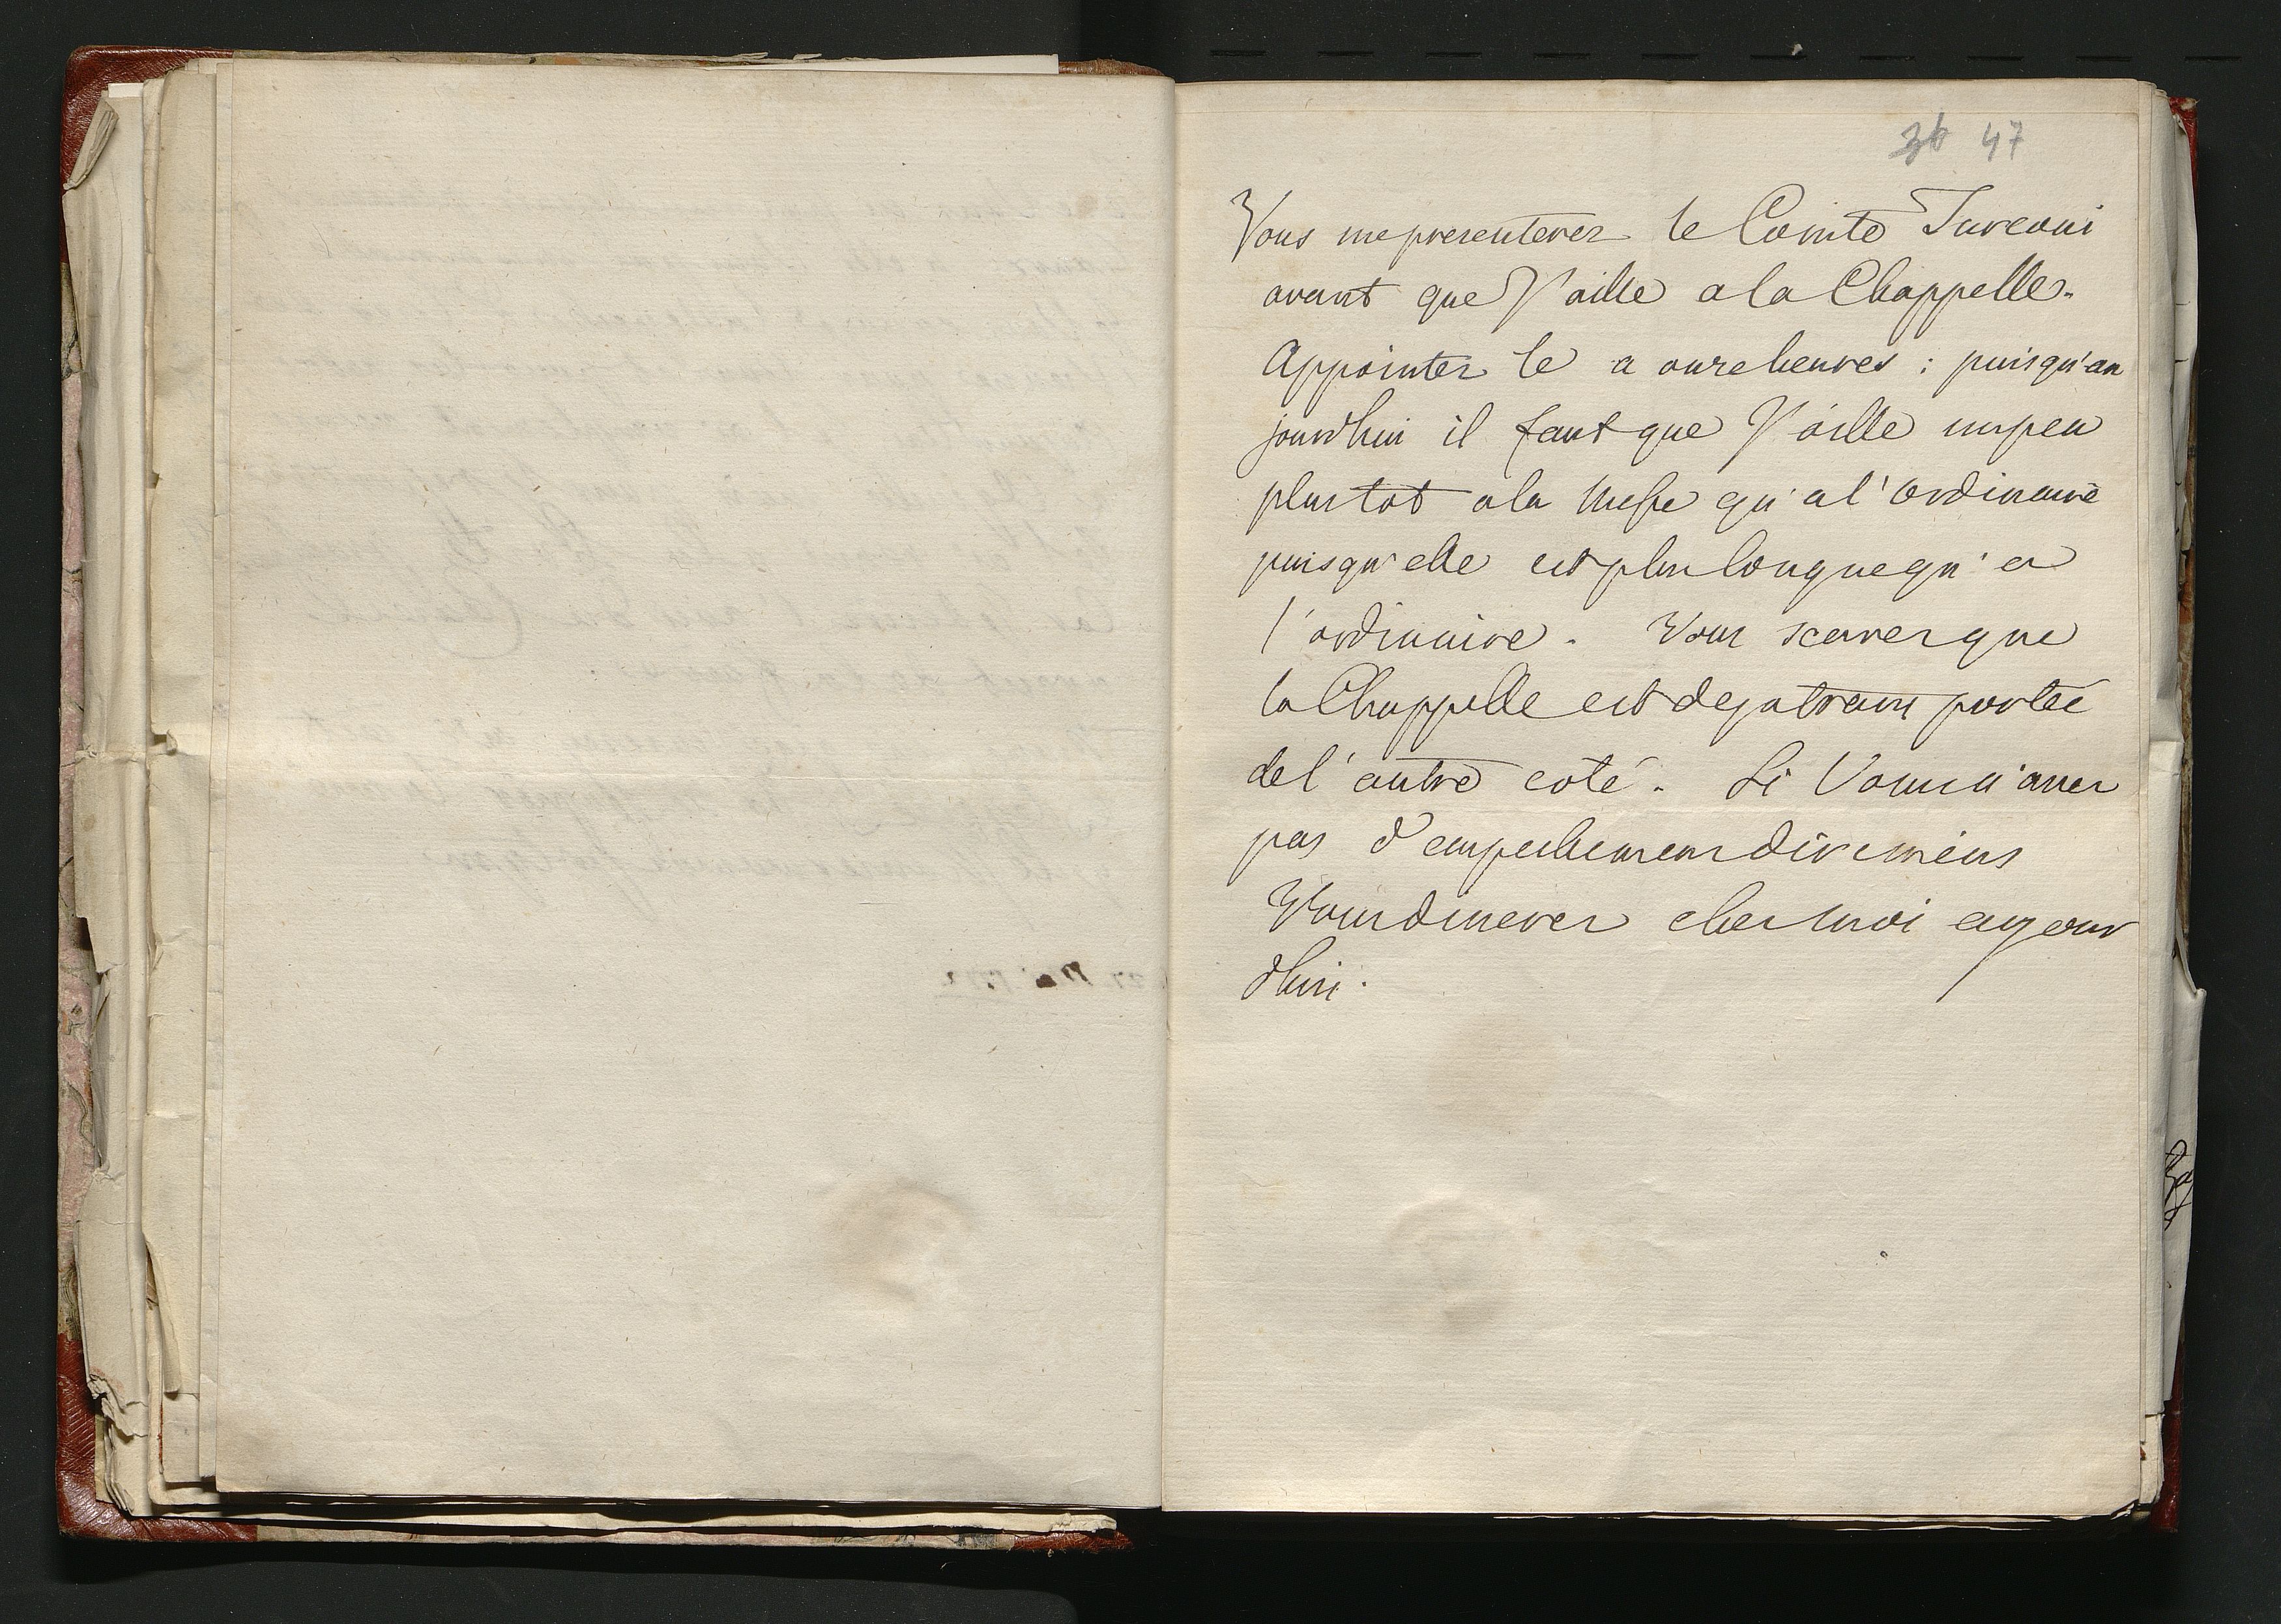 47
Vous me presenterez le Comte Tureoni
avant que J'aille a la Chappelle.
Appointez le a onze heures : puisqu'au
jourdhui il faut que J'aille un peu
plustot a la Messe qu'a l'ordinaire
puisqu'elle est plus longue qu'a
l'ordinaire. Vous scavez que
la Chappelle est deja transportée
de l'autre coté. Si Vous n'avez
pas d'empechemens dirimens
Vous dinerez chez moi aujour
dhui.